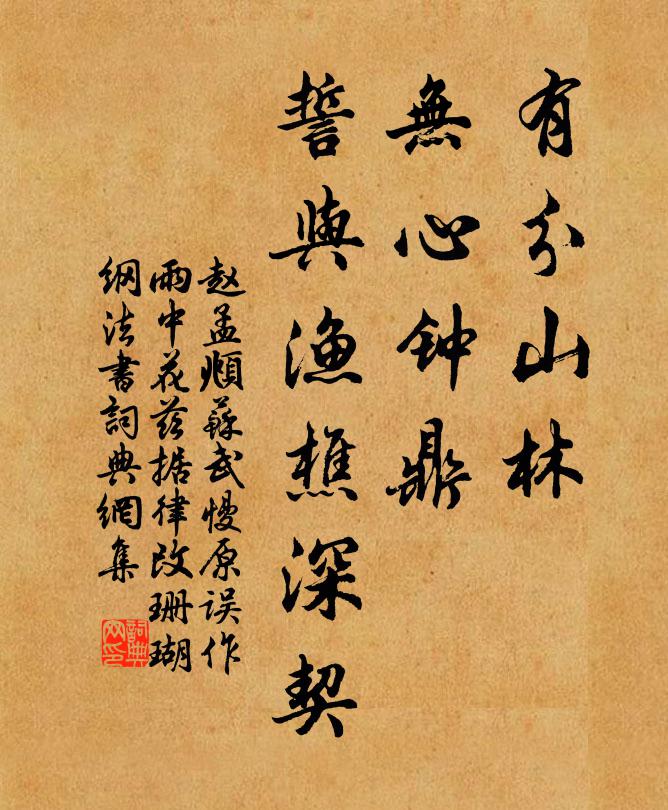 有分山林
無心钟鼎
誓與漁樵深契
赵孟頫蘇武慢原误作
雨中花茲据律改珊瑚
纲法書詞典網集
詞典
网印